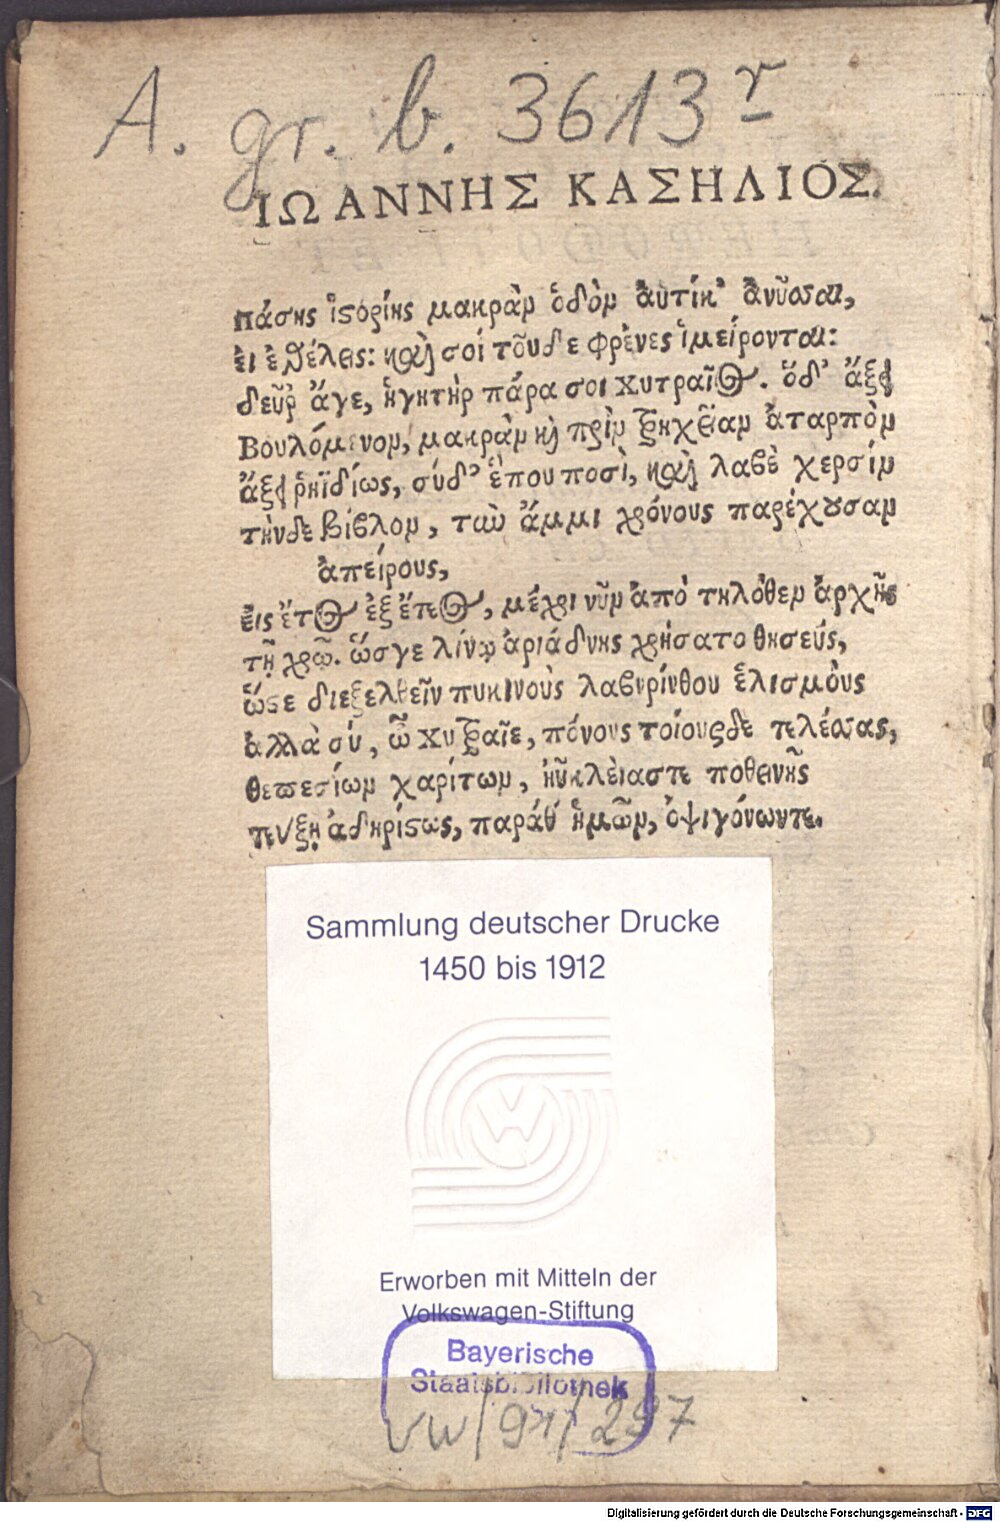 A. gr. b. 3613 r
ΙΩΑΝΝΗΣ ΚΑΣΗΛΙΟΣ.
πάσης ἱϛορίης μακρὰν ὁδὸν αὐτίκ' ἀνῦσαι,
ἐι ἐθέλεις: καὶ σοί τοῦδε φρένες ἱμείρονται:
δεῦρ' ἄγε, ἡγητὴρ πάρα σοι χυτραῖος. ὅδ' ἄξει
Βουλόμενον, μακρὰν καὶ πρὶν τρηχεῖαν ἀταρπὸν
ἄξει ῥηϊδίως, σύδ' ἕπου ποσὶ, καὶ λαβὲ χερσίν
τήνδε βίβλον, τὰν ἄμμι χρόνους παρέχουσαν
ἀπείρους,
ἐις ἔτος ἐξ ἔτεος, μέχρι νῦν ἀπὸ τηλόθεν ἀρχῆς
τῇ χρῶ. ὥσγε λίνῳ ἀριάδνης χρήσατο θησεύς,
ὥϛε διεξελθεῖν πυκινοὺς λαβυρίνθου ἑλισμοὺς
ἀλλὰ σύ, ὦ χυτραῖε, πόνους τοίουςδε τελέσας,
θεσπεσίων χαρίτων, ἠϋκλείαστε ποθεινῆς
τεύξῃ ἀδηρίϛως, παράθ' ἡμῶν, ὀψιγόνωντε.
Sammlung deutscher Drucke
1450 bis 1912
Erworben mit Mitteln der
Volkswagen-Stiftung
Bayerische
Staatsbibliothek
VW/91/297
Digitalisierung gefördert durch die Deutsche Forschungsgemeinschaft - DFG